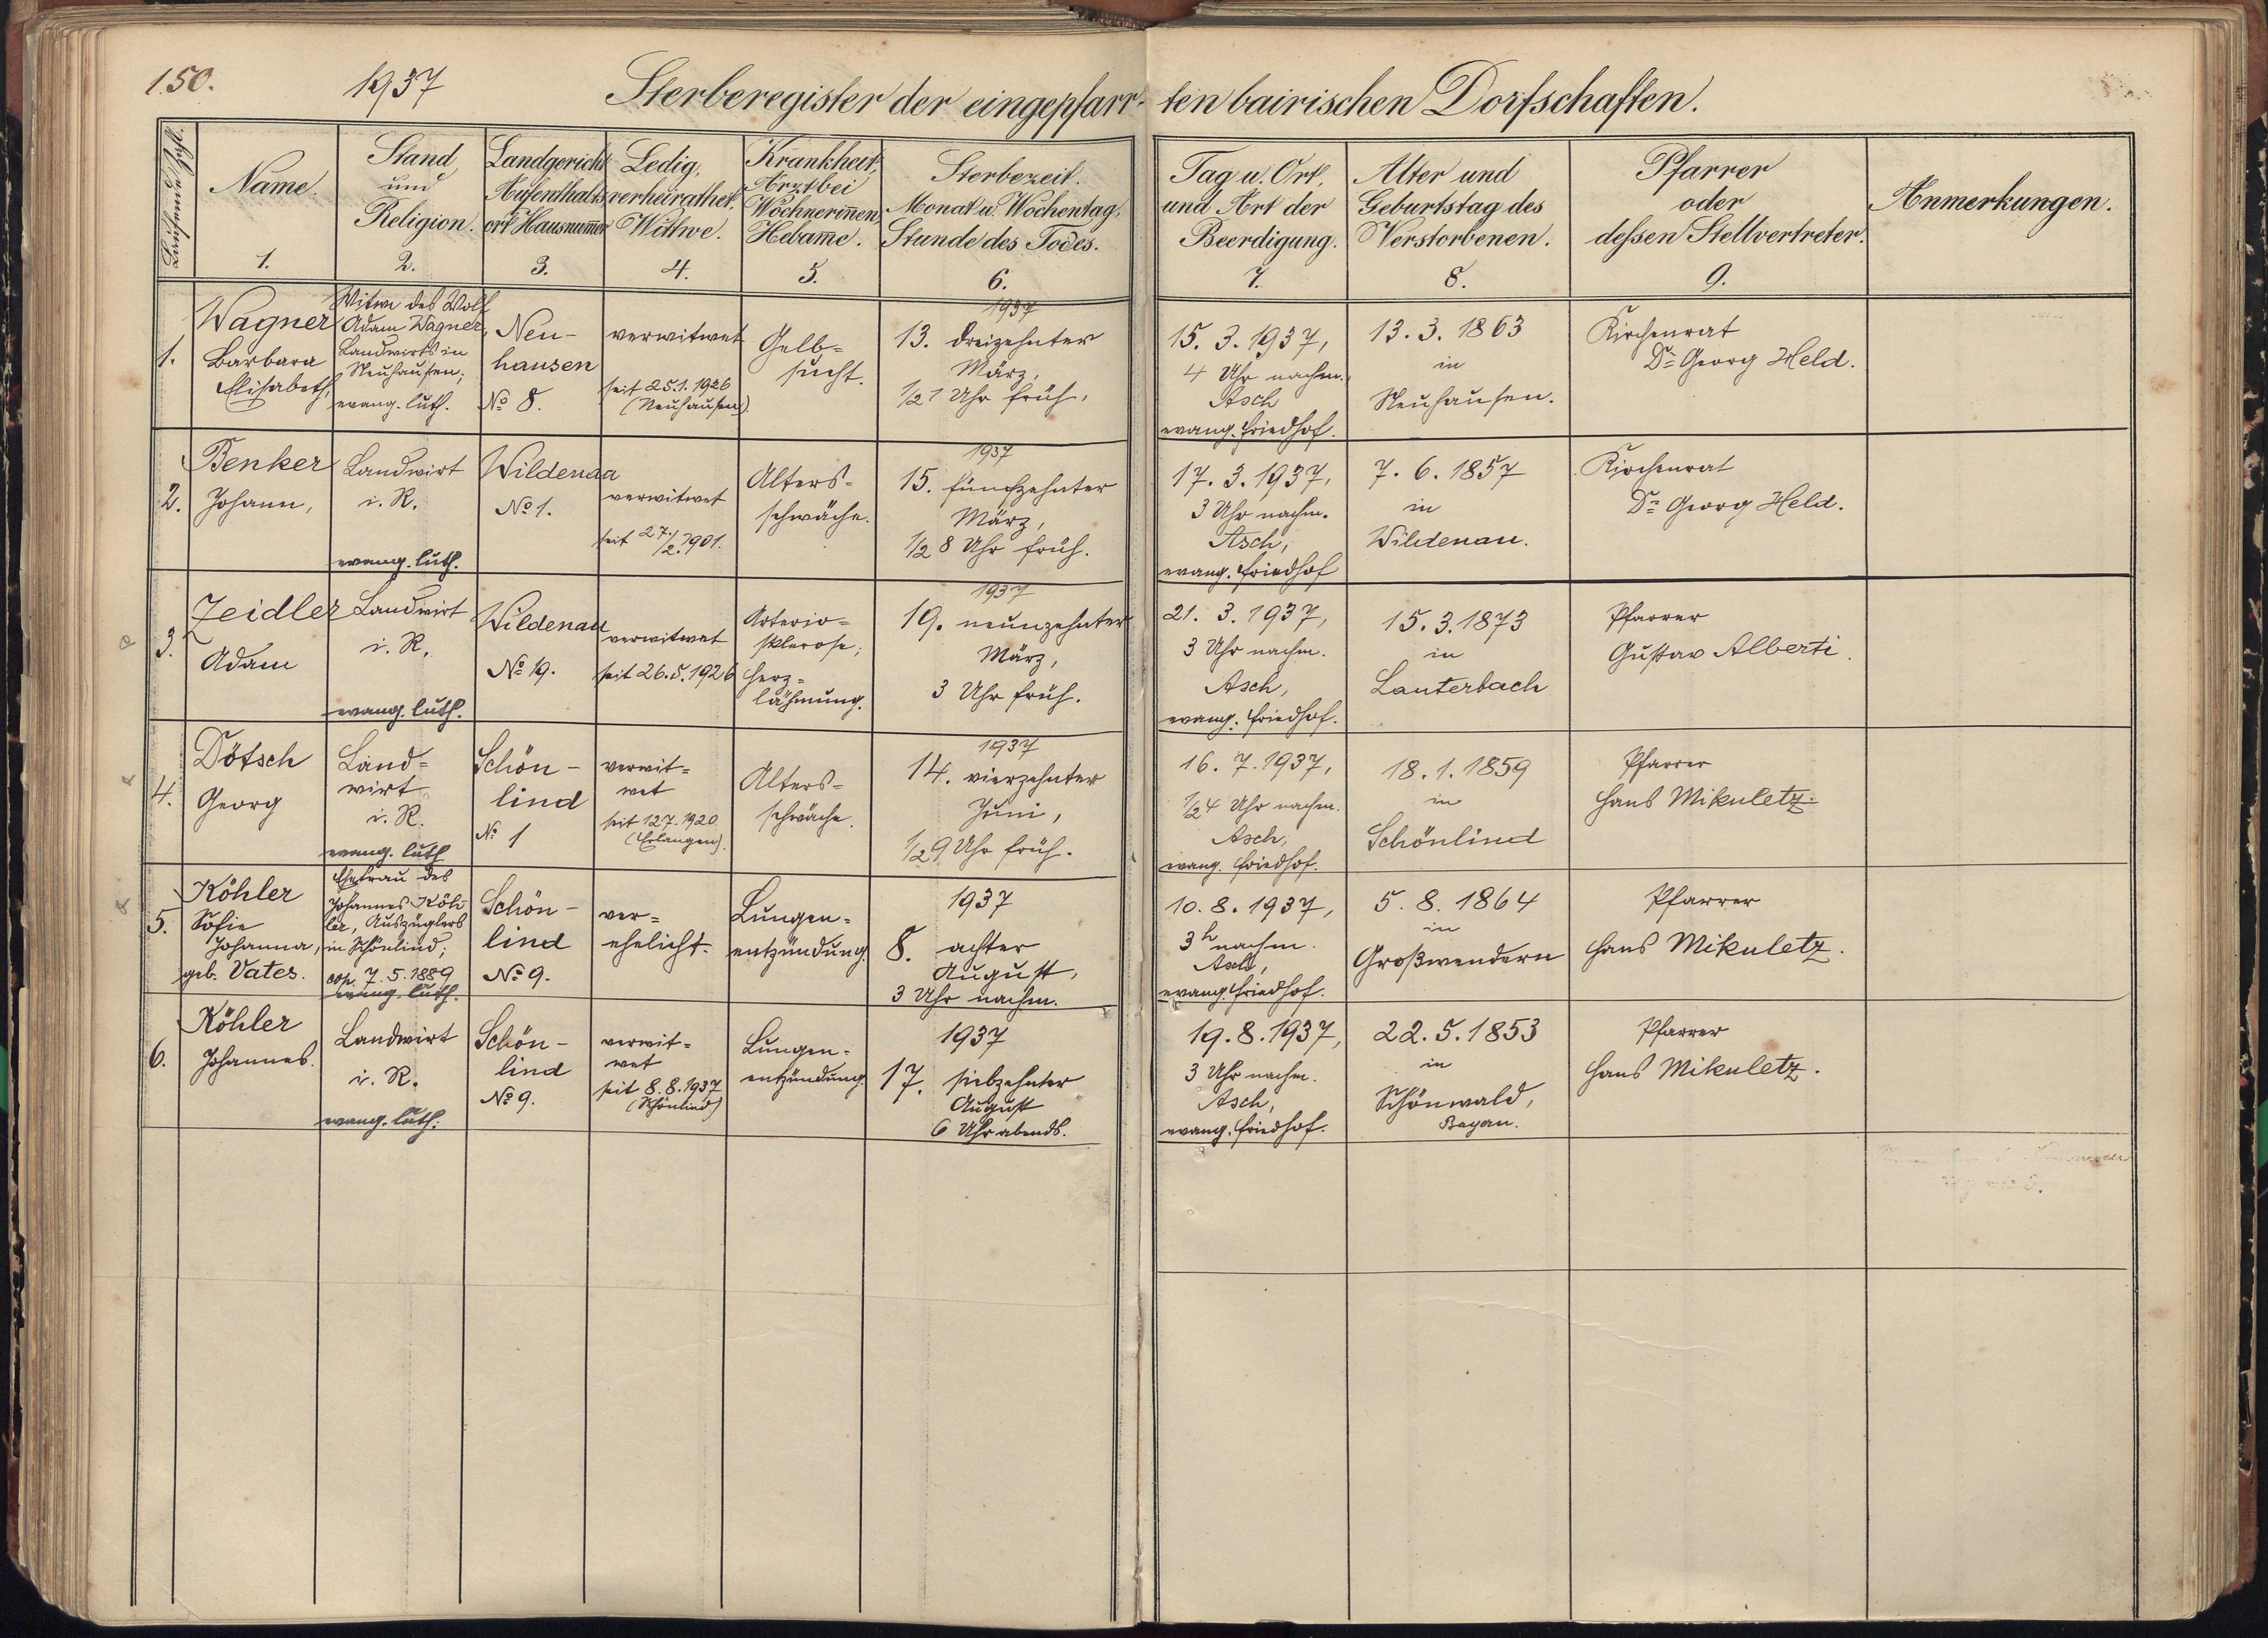 150.
1937
Sterberegister der eingepfarr-
ten bairischen Dorfschaften.
Laufende Zahl.
Name.
1.
Stand
und
Religion.
2.
Landgericht
Aufenthalts-
ort Hausnum̄er
3.
Ledig,
verheirathet.
Wittwe.
4.
Krankheit,
Arzt bei
Wöchnerin̄en,
Hebam̄e.
5.
Sterbezeit.
Monat u. Wochentag,
Stunde des Todes.
6.
Tag u. Ort,
und Art der
Beerdigung.
7.
Alter und
Geburtstag des
Verstorbenen.
8.
Pfarrer
oder
deſsen Stellvertreter.
9.
Anmerkungen.
1.
Wagner
Barbara
Elisabeth,
Witwe des Wolf
Adam Wagner,
Landwirts in
Neuhausen;
evang. luth.
Neu-
hausen
No 8.
verwitwet
seit 25.1.1926
(Neuhausen).
Gelb=
sucht.
1937
13. dreizehnter
März,
1/2 1 Uhr früh,
15. 3. 1937,
4 Uhr nachm.
Asch
evang. Friedhof.
13. 3. 1863
in
Neuhausen.
Kirchenrat
Dr Georg Held.
2.
Benker
Johann,
Landwirt
i. R.
evang. luth.
Wildenau
No 1.
verwitwet
seit 27./2. 1901.
Alters=
schwäche.
1937
15. fünfzehnter
März,
1/2 8 Uhr früh.
17. 3. 1937,
3 Uhr nachm.
Asch,
evang. Friedhof
7. 6. 1857
in
Wildenau.
Kirchenrat
Dr Georg Held.
3.
Zeidler
Adam
Landwirt
i. R.
evang. luth.
Wildenau
No 19.
verwitwet
seit 26.5.1926
Arterio=
sklerose;
Herz=
lähmung.
1937
19. neunzehnter
März,
3 Uhr früh.
21. 3. 1937,
3 Uhr nachm.
Asch,
evang. Friedhof.
15. 3. 1873
in
Lauterbach
Pfarrer
Gustav Alberti.
4.
Dötsch
Georg
Land=
wirt
i. R.
evang. luth
Schön-
lind
No 1
verwit=
wet
seit 12.7.1920
(Erlangen).
Alters=
schwäche.
1937
14. vierzehnter
Juni,
1/2 9 Uhr früh.
16. 7. 1937,
1/2 4 Uhr nachm.
Asch,
evang. Friedhof.
18. 1. 1859
in
Schönlind
Pfarrer
Hans Mikuletz.
5.
Köhler
Sofie
Johanna,
geb. Vates.
Ehefrau des
Johannes Köh-
ler, Auszüglers
in Schönlind;
cop. 7. 5. 1889
evang. luth.
Schön-
lind
No 9.
ver=
ehelicht.
Lungen=
entzündung.
1937
8. achter
August,
3 Uhr nachm.
10. 8. 1937,
3h nachm.
Asch,
evang. Friedhof.
5. 8. 1864
in
Großwendern
Pfarrer
Hans Mikuletz.
6.
Köhler
Johannes.
Landwirt
i. R.
evang. luth.
Schön-
lind
No 9.
verwit=
wet
seit 8.8.1937
(Schönlind)
Lungen=
entzündung.
1937
17. siebzehnter
August
6 Uhr abends.
19. 8. 1937,
3 Uhr nachm.
Asch,
evang. Friedhof.
22. 5. 1853
in
Schönwald,
Bayern.
Pfarrer
Hans Mikuletz.